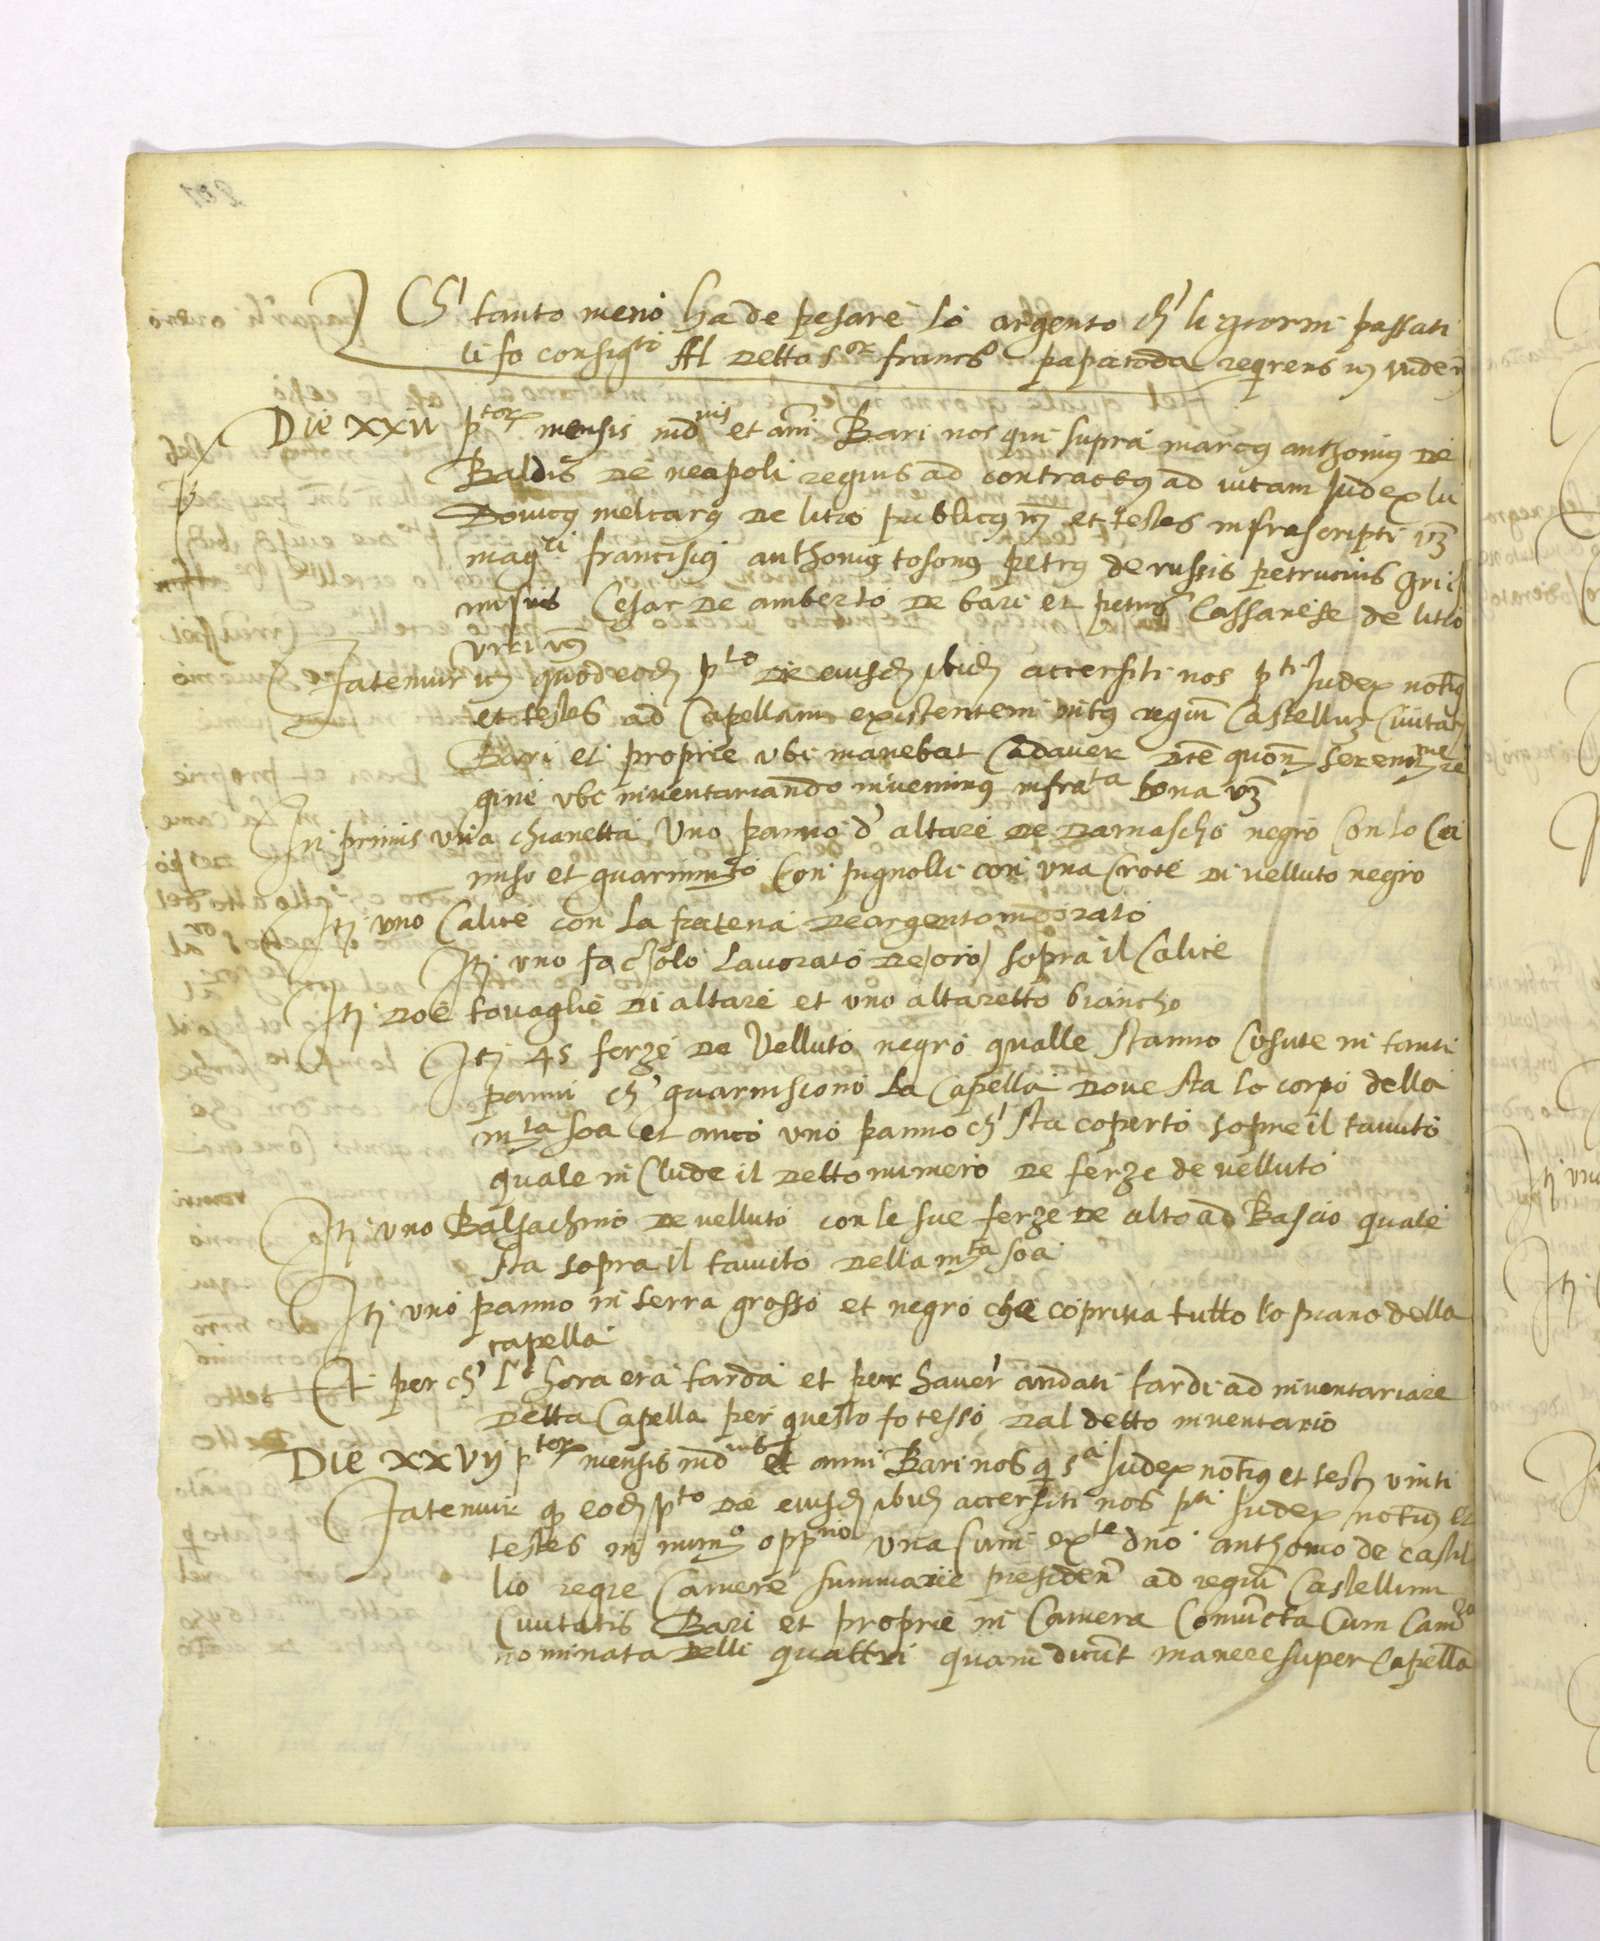 Ch' tanto meno ha de pesare lo argento ch' li giorni passati
li fo consig.ti Al detto s.or franc.o papacoda reqrens
Die XXVII p.tor mensis ind.nis et anni Bari nos qui supra marcus anthonius de
Baldis de neapoli regius ad contractus ad vitam Judex lu
Dovicus melcarus de litio publicus et testes infrascripti vz
mag.ci franciscus anthonius tosonus petrus de russis petrucius Gri
Cesar de amberto de bari et petrus Cassanese de litio

fatemur quod eod p.to die eiusd ibid accersiti nos p.ti Judex not.s
et testes ad Capellam existentem intus regiu Castelluz Civitat
Bari et proprie ubi manebat Cadaver dce quon seren.me re
gine ubi inventariando invenimus infra.ta bona vz
In primis una chianetta Uno panno d' altare de Damascho negro Con lo Ca
miso et guarnim.to Con pugnolli con una Croce di velluto negro
Itj uno Calice con la patena de argento indorato
Itj uno faczolo lavorato de oro sopra il Calice
Itj doe tovaglie di altare et uno altaretto biancho
Itj 45 ferze de Velluto negro qualle stanno Cosute in tanti
panni ch' guarnisconò la Capella dove sta lo corpo della
m.ta soa et anco uno panno ch' sta coperto sopre il tauto
quale in Clude il detto numero de ferze de velluto
Itj uno Balsachino de velluto con le sue ferze de alto ad Bascio quale
sta sopra il tauito della m.ta soa
Itj uno panno in terra grosso et negro che copriva tutto lo piano della
capella
Et per ch' l' hora era tarda et per haver' andati tardi ad inventariare
detta Capella per questo fo tesso dal detto inventario
Die XXVIJ p.tor mensis ind.nis et anni Bari nos q s.a Judex not.s et test
fatemur q eod p.to die eiusd ibid accersiti nos p.ti Judex not.s et
testes in num.o opp.no una cum ex.te dno anthonio de castil
lio regie Camere summarie presiden ad regiu Castellum
Civitatis Bari et proprie in Camera Coniucta Cum Cam.ra
nominata delli quattri quam dicut manere super Capella